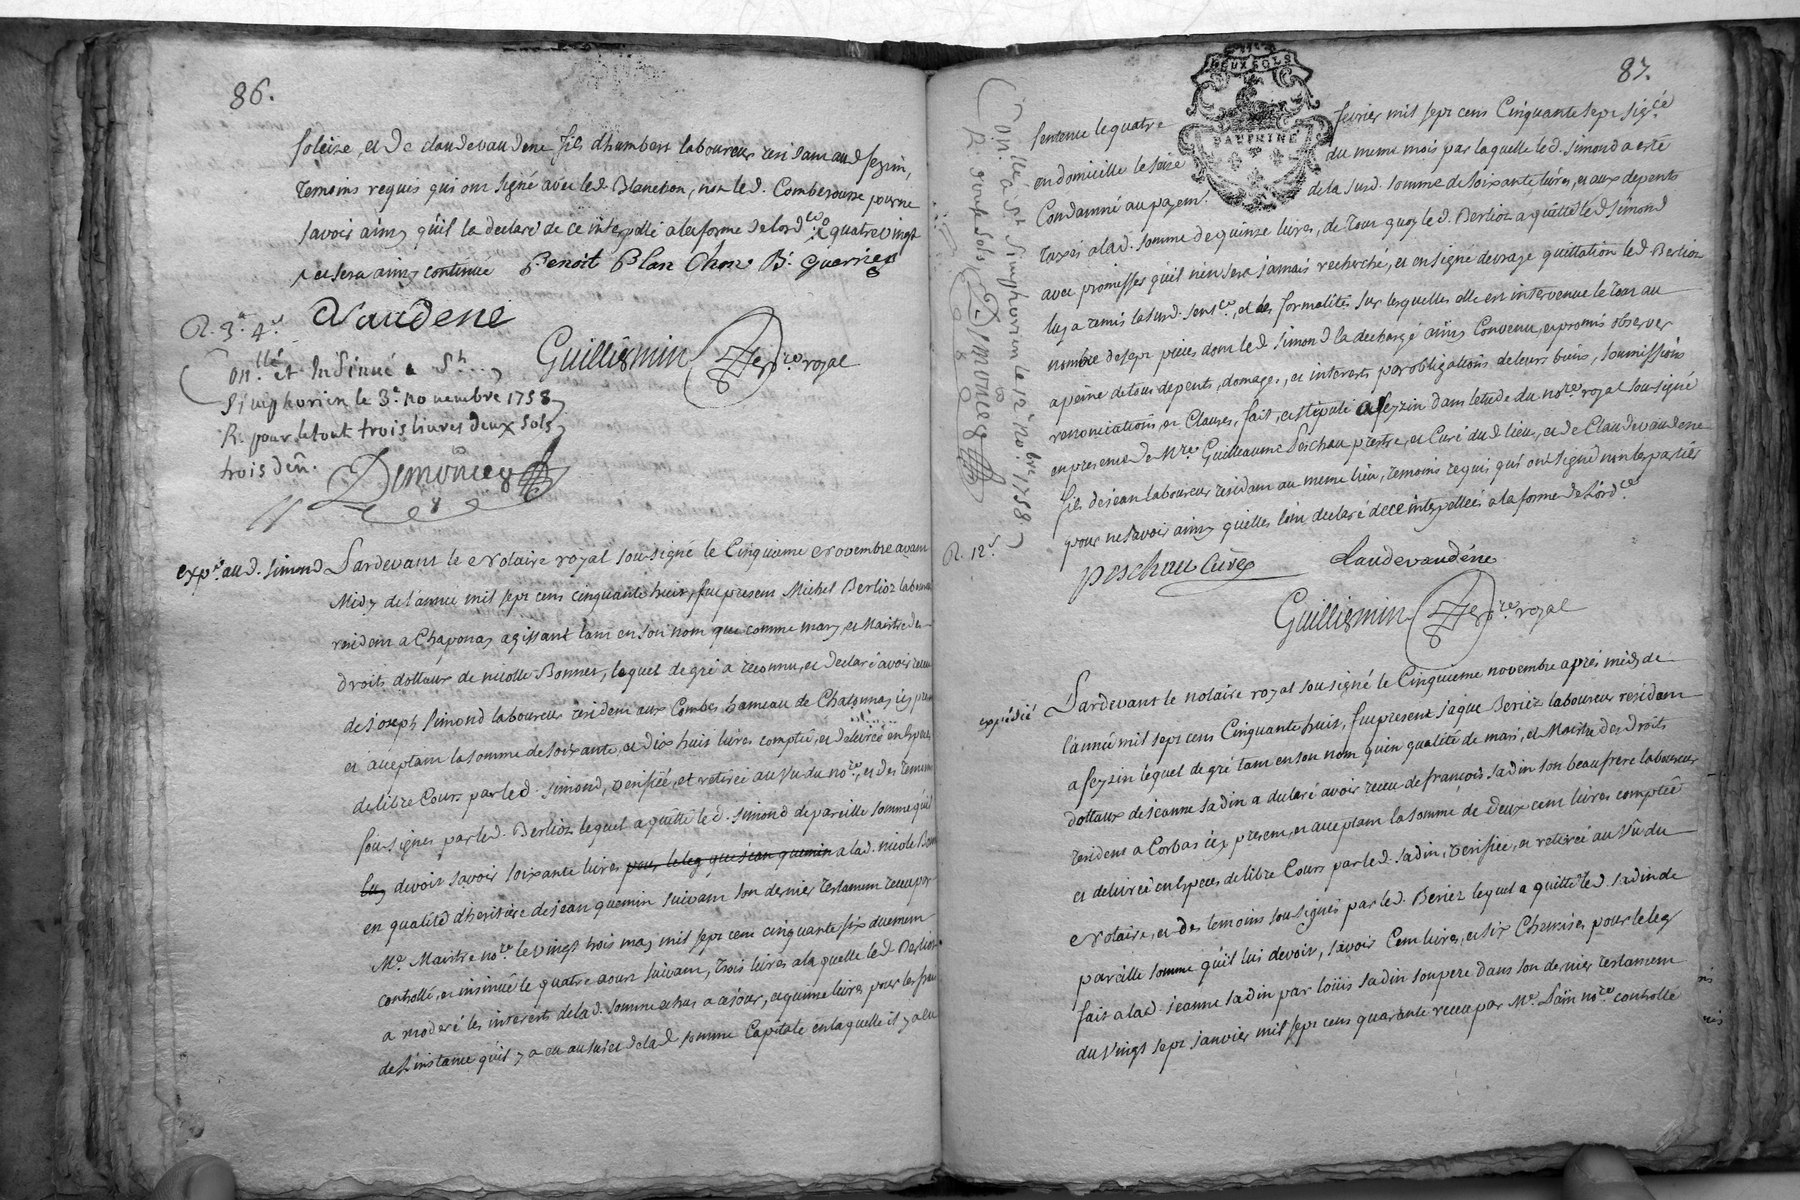 86.
soleize, et de claude vaudene fils d'humbert laboureur residant aud. feyzin,
temoins requis qui ont signé avec led. Blanchon, non led. Comberousse pour ne
savoir ainsy qu'il la declaré de ce interpellé a la forme de lord.ce
quatre vingt
et sera ainsy continué Benoit Blan Chon B. Guerrier
Vaudene
Guilliermin n.re royal
R. 3ᵗ 4ˢ
Con.llé et Insinué a St.
Simphorien le 3.e novembre 1758
R. pour le tout trois livres deux sols
trois den.
Demoncey
exp.é aud. simond
Pardevant le Notaire royal soussigné le Cinquieme Novembre avant
Midy de l'année mil sept cens cinquante huit, fut present Michel Berlioz laboureur
resident a Chaponay agissant tant en son nom que comme mary et Maistre des
droits dottaux de nicolle Bonnet, lequel de gré a reconnu, et declaré avoir receu
de joseph simond laboureur resident aux Combes hameau de Chatonnay icy present
et acceptant la somme de soixante et dix huit livres comptée, et delivrée en especes
de libre Cours par led. simond, verifiée, et retirée au Vu du no.re, et des temoins
soussignes par led. Berlioz lequel a quitté led. simond de pareille somme qu'il
luy devoit savoir soixante livres pour le leg que jean quemin a lad. nicole Bonnet
en qualité d'heritiere de jean quemin suivant son dernier testament receu par
M.e Maistre no.re le vingt trois may mil sept cent cinquante six duement
controllé, et insinué le quatre aoust suivant, trois livres a la quelle led. Berlioz
a moderé les interests de lad. somme echus a ce jour, et quinze livres pour les frais
de L'instance qu'il y a eu au sujet de lad. somme Capitale en laquelle il y a eu
87.
DEUX SOLS
DAUPHINE
sentence le quatre fevrier mil sept cens Cinquante sept sig.ée
en domicille le seize du meme mois par laquelle led. simond a esté
Condamné au payem.t de la susd. somme de soixante livres, et aux depents
taxés a lad. somme de quinze livres, de tout quoy led. Berlioz a quitté led. simond
avec promesses qu'il n'en sera jamais recherché, et en signe de vraye quittation led. Berlioz
luy a remis la susd. sent.ce, et les formalités sur lesquelles elle est intervenue le tout au
nombre de sept pieces dont led. simond la dechargé ainsy Convenu, et promis observer
a peine de tous depents, domages, et interests par obligations de leurs biens, soumissions
renonciations, et Clauses, fait, et stipulé a feyzin dans letude du no.re royal soussigné
en presence de M.re Guilleaume Peschau prestre, et Curé dud. lieu, et de Claude vaudene
fils de jean laboureur residant au meme lieu, temoins requis qui ont signé non les parties
pour ne savoir ainsy quelles l'ont declaré de ce interpellées a la forme de L'ord.ce
Peschau Curé Claude vaudéne
Guilliermin n.re royal
Con.llé a St Simphorien le 12e no.bre 1758
R. douze sols
Demoncey
R. 12ˢ.
expedié
Pardevant le notaire royal soussigné le Cinquieme novembre apres midy de
l'année mil sept cens Cinquante huit, fut present jaque Beriez laboureur residant
a feyzin lequel de gré tant en son nom qu'en qualité de mari, et Maistre des droits
dottaux de jeanne sadin a declaré avoir receu de françois sadin son beau frere laboureur
resident a Corbas icy present, et acceptant la somme de deux cent livres comptée
et delivrée en especes de libre Cours par led. sadin, verifiée, et retirée au Vû du
Notaire, et des temoins soussignés par led. Beriez lequel a quitté led. sadin de
pareille somme qu'il lui devoit, savoir Cent livres, et six Chemises pour le leg
fait a lad. jeanne sadin par loüis sadin son pere dans son dernier testament
du vingt sept janvier mil sept cens quarante receu par M.e Laïn no.re controllé